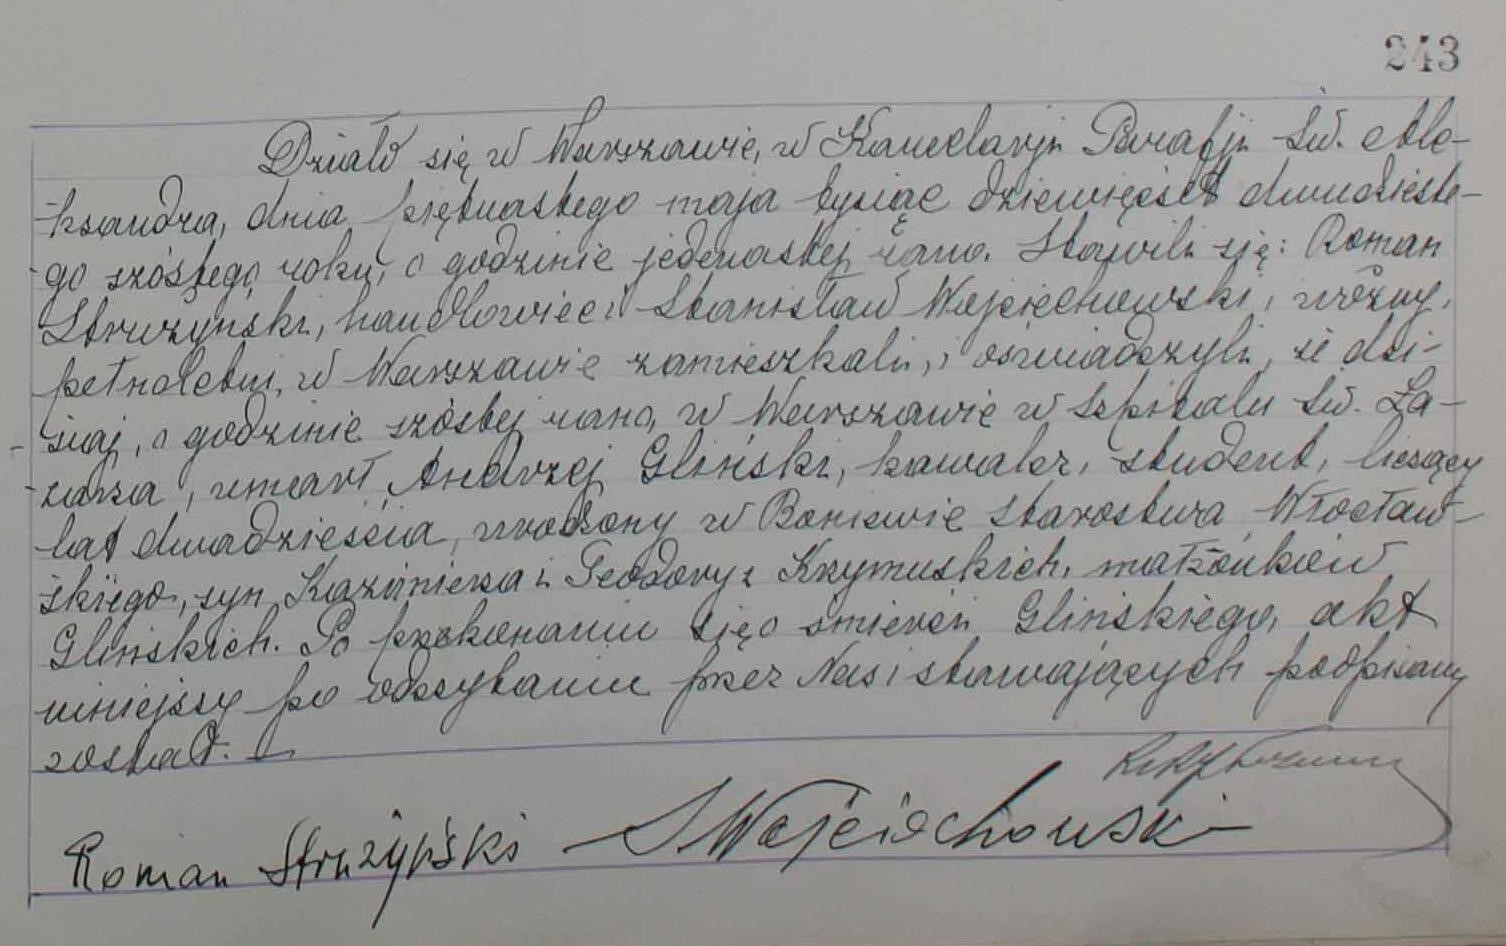 243
Działo się w Warszawie, w Kancelarji Parafji Św. Ale-
ksandra, dnia piętnastego maja tysiąc dziewięćset dwudzieste-
go szóstego roku, o godzinie jedenastej rano. Stawili się: Roman
Strużyński, handlowiec i Stanisław Wojciechowski, woźny,
pełnoletni, w Warszawie zamieszkali, i oświadczyli, że dzi-
siaj, o godzinie szóstej rano, w Warszawie w szpitalu Św. Ła-
zarza, umarł Andrzej Gliński, kawaler, student, liczący
lat dwadzieścia, urodzony w Boniewie Starostwa Włocław-
skiego, syn Kazimierza i Teodory z Krzymuskich, małżonków
Glińskich. Po przekonaniu się o śmierci Glińskiego, akt
niniejszy po odczytaniu przez Nas i stawających podpisany
został.
Roman Strużyński SWojciechowski